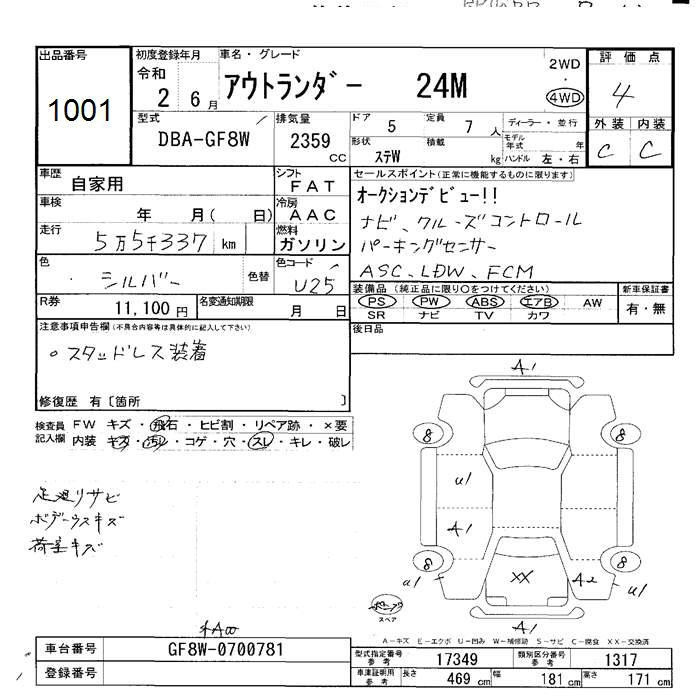 出品番号
1001
初度登録年月
令和
2 6月
車名・グレード
アウトランダー 24M
2WD
・
4WD
評価点
4
型式
DBA-GF8W
排気量
2359
CC
ドア 5 定員 7 人
ディーラー・並行
形状 ステW 積載 kg
モデル年式 年
ハンドル 左・右
外装 内装
C C
車歴 自家用
シフト FAT
車検 年 月( 日)
冷房 AAC
走行 5万5千337 km
燃料 ガソリン
色 シルバー 色替
色コード U25
R券 11,100円
名変通知期限 月 日
セールスポイント(正常に機能するものに限ります)
オークションデビュー!!
ナビ、クルーズコントロール
パーキングセンサー
ASC、LDW、FCM
装備品(純正品に限り○をつけてください)
PS PW ABS エアB AW
SR ナビ TV カワ
新車保証書
有・無
後日品
注意事項申告欄(不具合内容等は具体的に記入して下さい)
○スタッドレス装着
修復歴 有〔箇所 〕
検査員記入欄
FW キズ・飛石・ヒビ割・リペア跡・×要
内装 キズ・汚レ・コゲ・穴・スレ・キレ・破レ
足廻リサビ
ボデーウスキズ
荷室キズ
A1
8 8
U1
A1
8 8
U1 XX A2 U1
スペア
A1
A-キズ E-エクボ U-凹み W-補修跡 S-サビ C-腐食 XX-交換済
車台番号 GF8W-0700781
登録番号
型式指定番号 参考 17349
類別区分番号 参考 1317
車庫証明用 参考 長さ 469 cm 幅 181 cm 高さ 171 cm